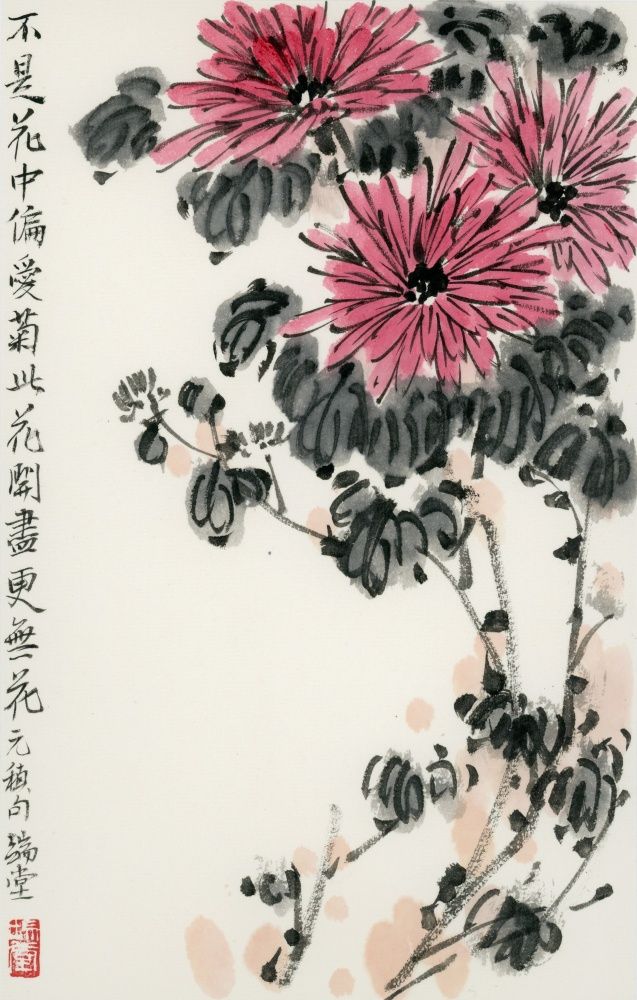 不是花中偏愛菊此花開盡更無花元稹句端堂
端堂